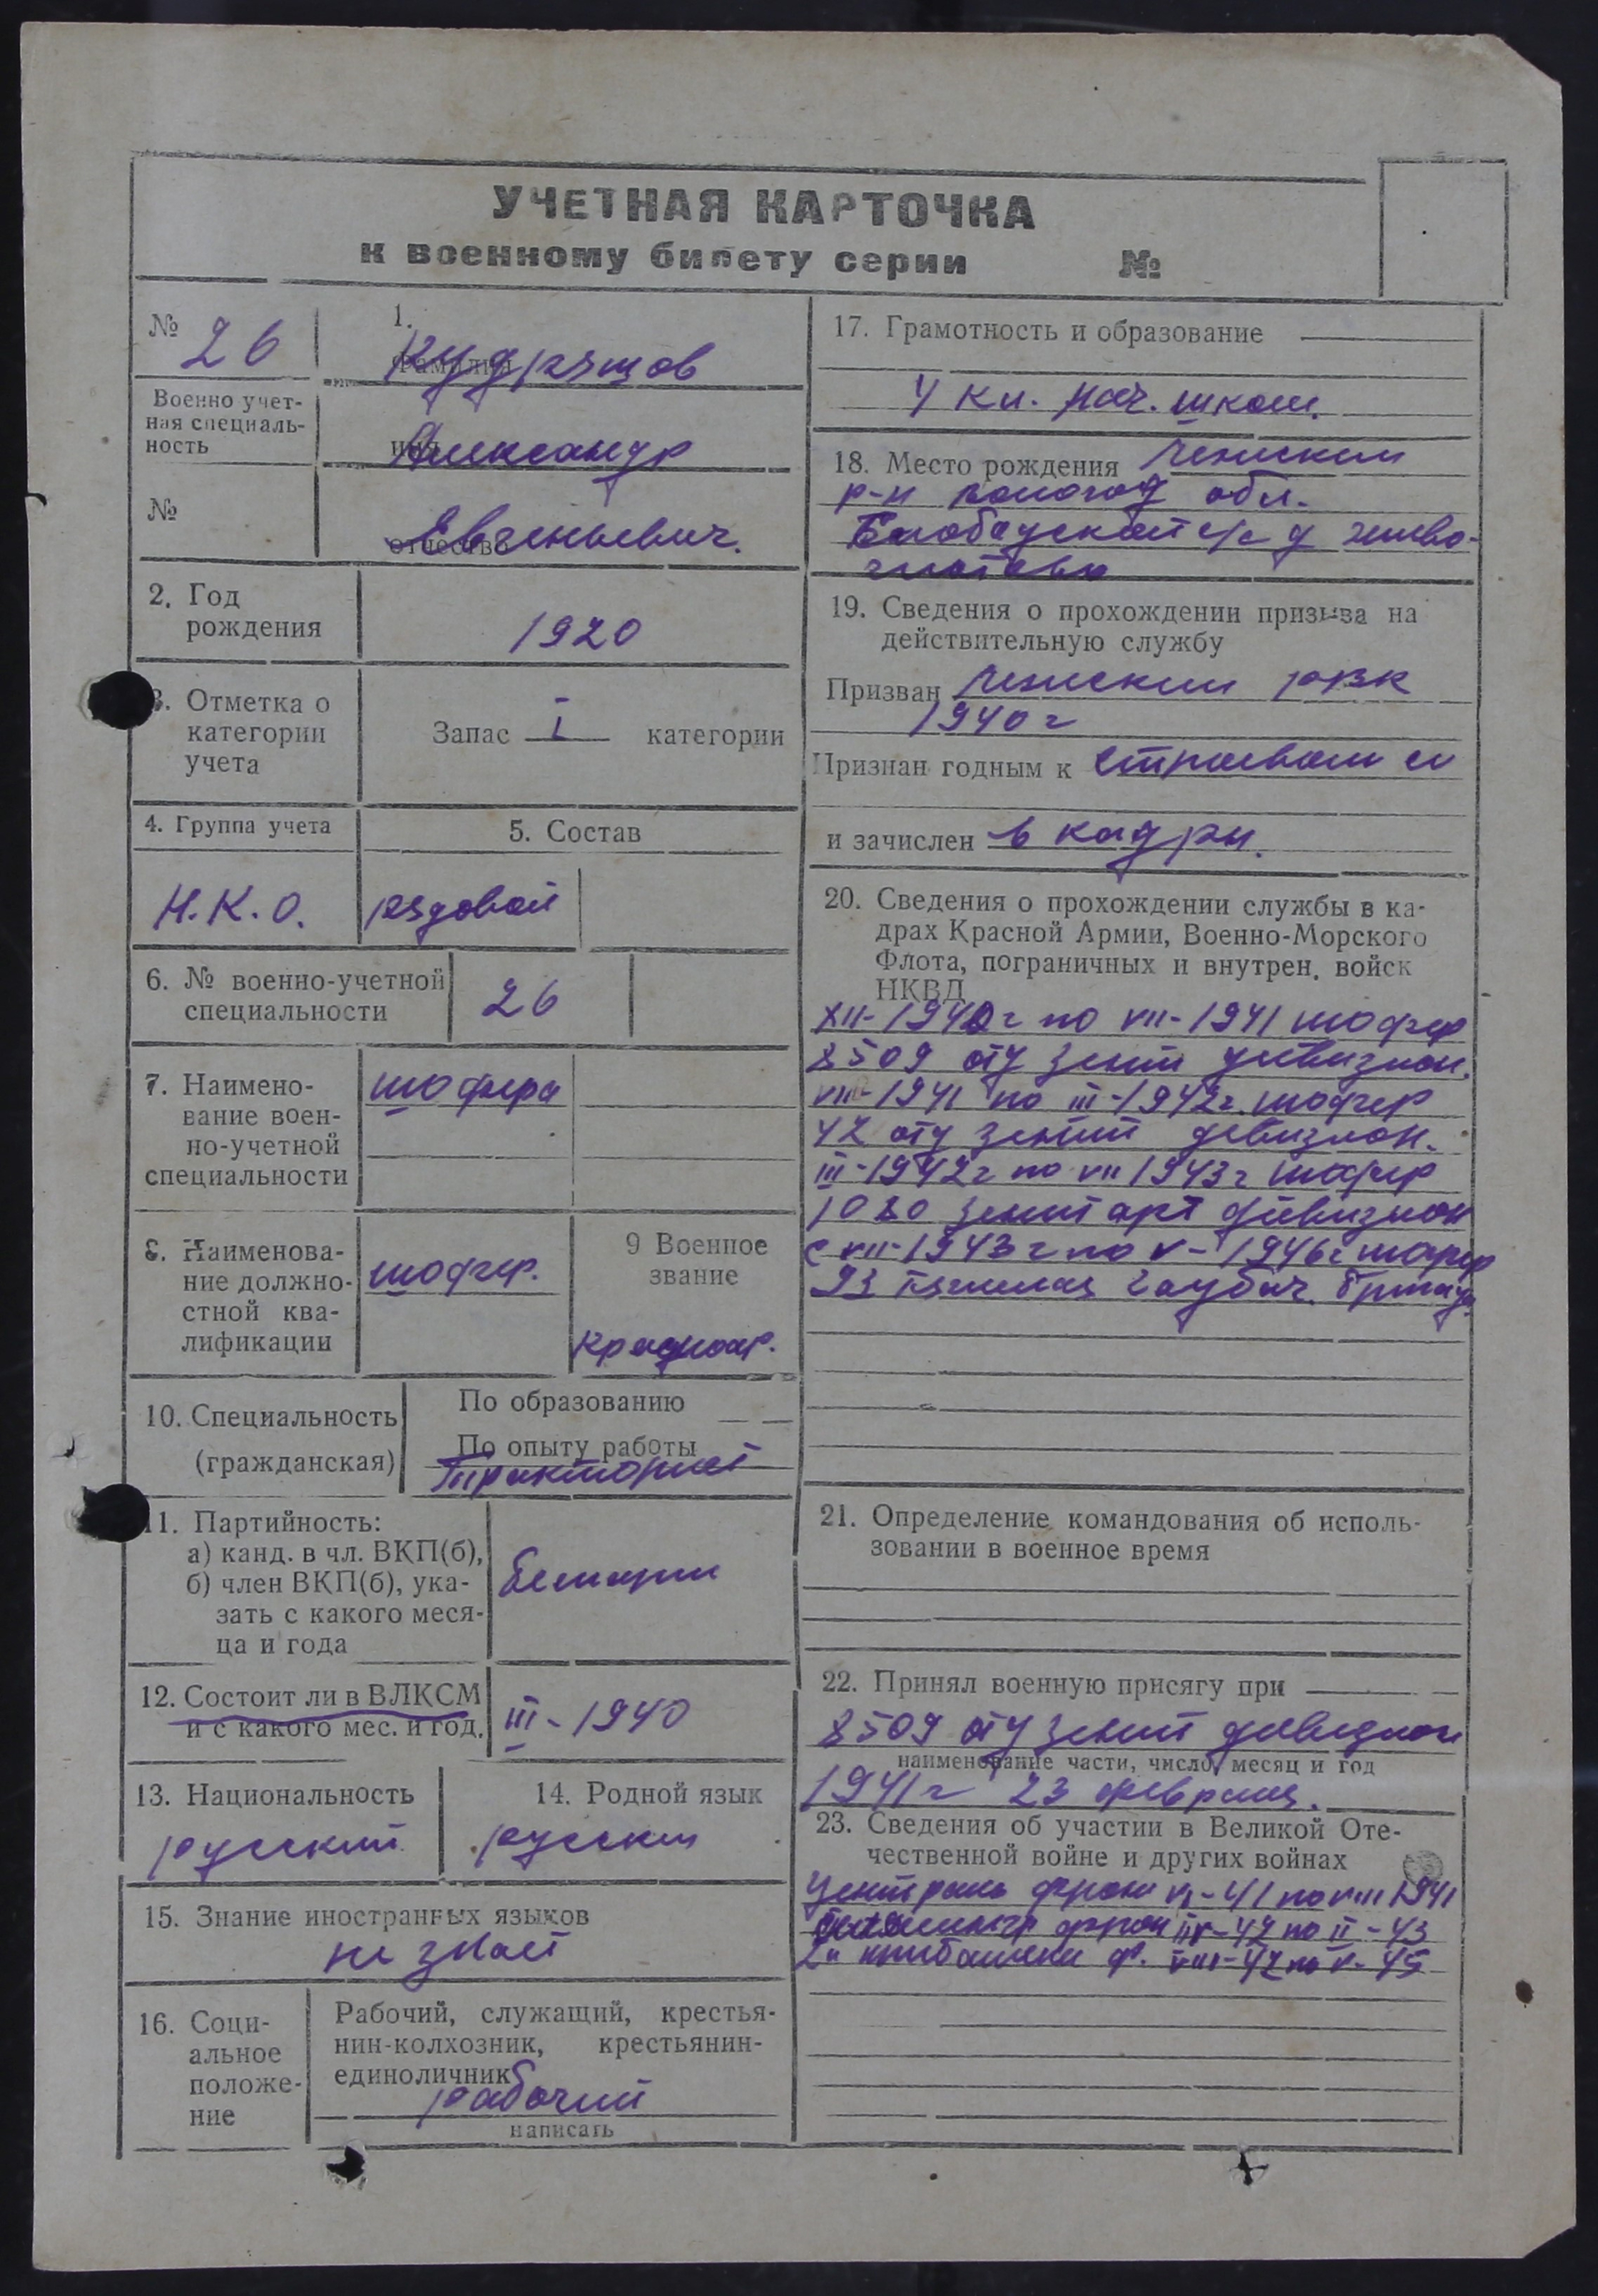 УЧЕТНАЯ КАРТОЧКА
к военному билету серии №
№ 26
Военно учет-
ная специаль-
ность
№
1.
Фамилия Кудряшов
имя Александр
отчество Евгеньевич.
2. Год
рождения
1920
3. Отметка о
категории
учета
Запас I категории
4. Группа учета
5. Состав
Н.К.О.
рядовой
6. № военно-учетной
специальности
26
7. Наимено-
вание воен-
но-учетной
специальности
шофера
8. Наименова-
ние должно-
стной ква-
лификации
шофер.
9 Военное
звание
Красноар.
10. Специальность
(гражданская)
По образованию
По опыту работы
Тракторист
11. Партийность:
а) канд. в чл. ВКП(б),
б) член ВКП(б), ука-
зать с какого меся-
ца и года
12. Состоит ли в ВЛКСМ
и с какого мес. и год.
III-1940
13. Национальность
русский
14. Родной язык
русский
15. Знание иностранных языков
не знает
16. Соци-
альное
положе-
ние
Рабочий, служащий, крестья-
нин-колхозник, крестьянин-
единоличник
рабочий
написать
17. Грамотность и образование
4 кл. нач. школ.
18. Место рождения
р-н Вологод обл.
с/с д
19. Сведения о прохождении призыва на
действительную службу
Призван РВК
1940 г
Признан годным к строевой сл
и зачислен в кадры.
20. Сведения о прохождении службы в ка-
драх Красной Армии, Военно-Морского
Флота, пограничных и внутрен. войск
НКВД
XII-1940 г по VII-1941 шофер
8509 отд зенит дивизион.
VIII-1941 по III-1942 г. шофер
42 отд зенит дивизион.
III-1942 г по VII 1943 г шофер
1080 зенит арт дивизион
с VII-1943 г по V-1946 г шофер
93 тяжелая гаубич. бригад
21. Определение командования об исполь-
зовании в военное время
22. Принял военную присягу при
8509 отд зенит дивизион
наименование части, число, месяц и год
1941 г 23 февраля.
23. Сведения об участии в Великой Оте-
чественной войне и других войнах
Централь фрон VI-41 по VIII 1941
фрон 42 по II-43
2й прибалтий ф. по V-45